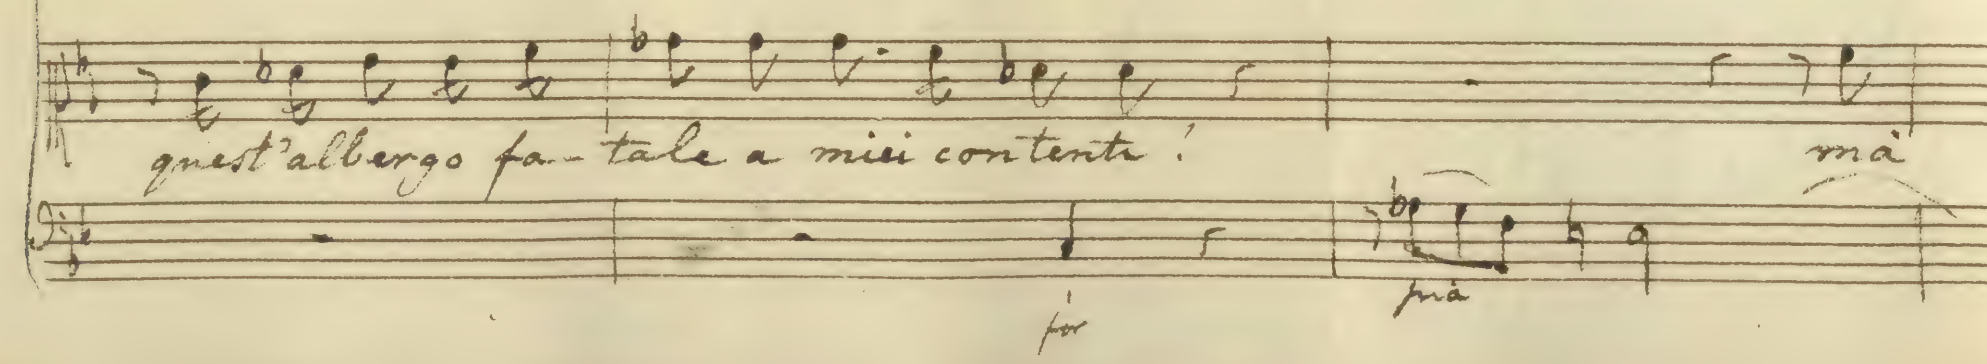 quest'albergo fa-tale a miei contenti! mà
for
pià